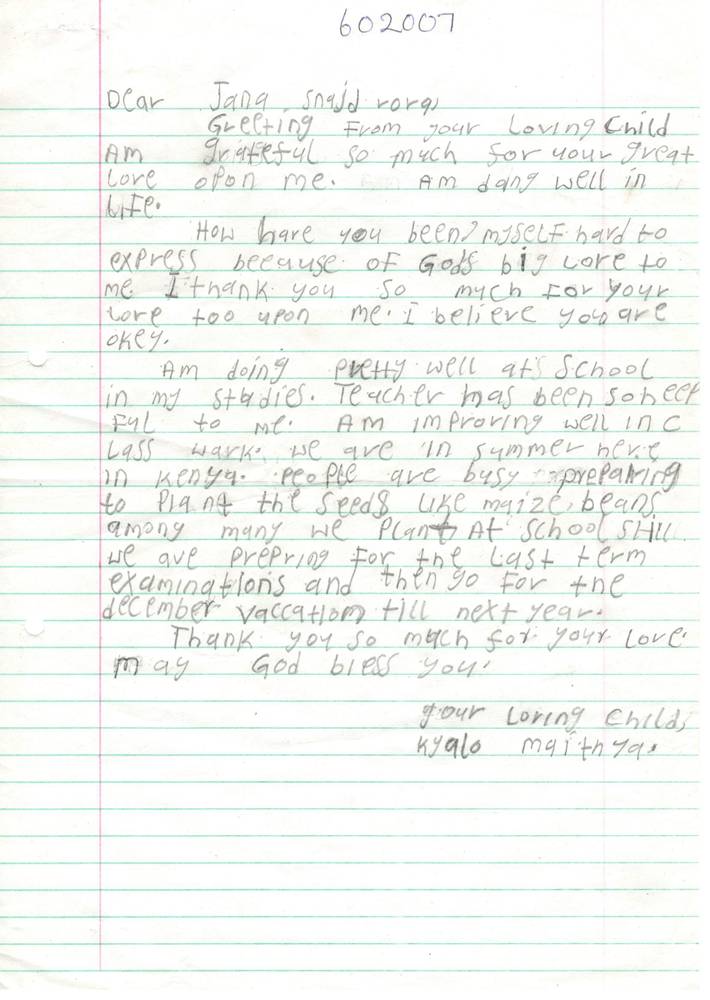 602007
Dear Jana. Snajd rorqs
Greeting From your Loving Child
Am grateful so much for your great
Love opon me. Am doing well in
LiFe.
How have you been? myself hard to
express beeause of God's big Love to
me I thank you so much For your
Love too upon me. I believe you are
okey.
Am doing pretty well at's School
in my studies. Teacher has been so heep
FuL to me. Am improving well in C
Lass work. we are in summer here
in Kenya. People are busy prepairing
to Plant the Seeds Like maize, beans
among many we Plant At School Still
we are preparing For the Last term
examinations and then go For the
december vaccation till next year.
Thank you so much for your Love.
may God bless you.
your Loving Child,
Kyalo maithya.